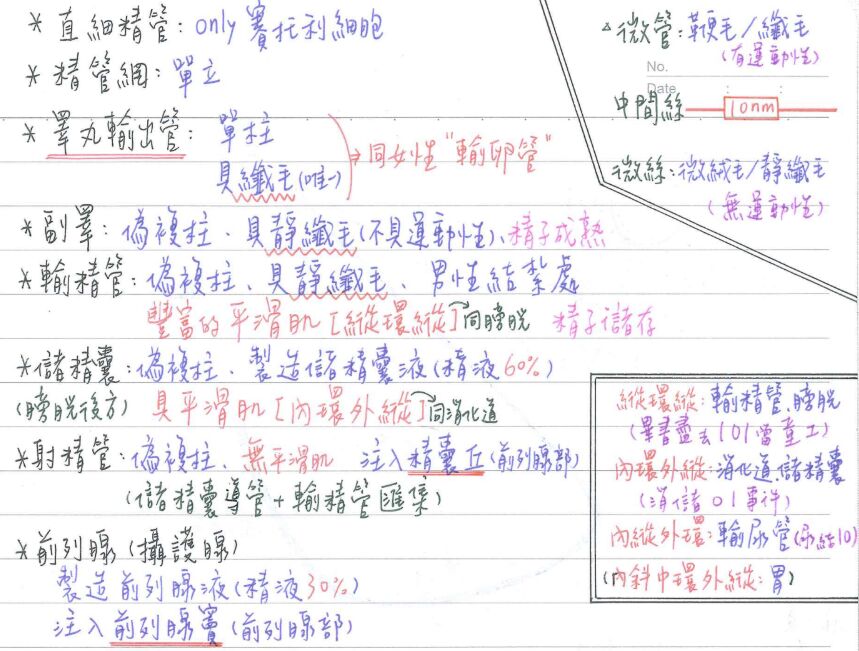 * 直細精管：only 賽托利細胞
* 精管網：單立
* 睪丸輸出管：單柱
具纖毛(唯一)
→同女性"輸卵管"
* 副睪：偽複柱、具靜纖毛(不具運動性)、精子成熟
* 輸精管：偽複柱、具靜纖毛、男性結紮處
豐富的平滑肌[縱環縱]同膀胱 精子儲存
* 儲精囊：偽複柱、製造儲精囊液(精液60%)
(膀胱後方) 具平滑肌[內環外縱]同消化道
* 射精管：偽複柱、無平滑肌 注入精囊丘(前列腺部)
(儲精囊導管+輸精管匯集)
* 前列腺(攝護腺)
製造前列腺液(精液30%)
注入前列腺竇(前列腺部)
△微管：鞭毛/纖毛
(有運動性)
No.
Date
中間絲 10nm
微絲：微絨毛/靜纖毛
(無運動性)
縱環縱：輸精管、膀胱
(畢書盡去101當童工)
內環外縱：消化道、儲精囊
(消儲01事件)
內縱外環：輸尿管(尿結10)
(內斜中環外縱：胃)